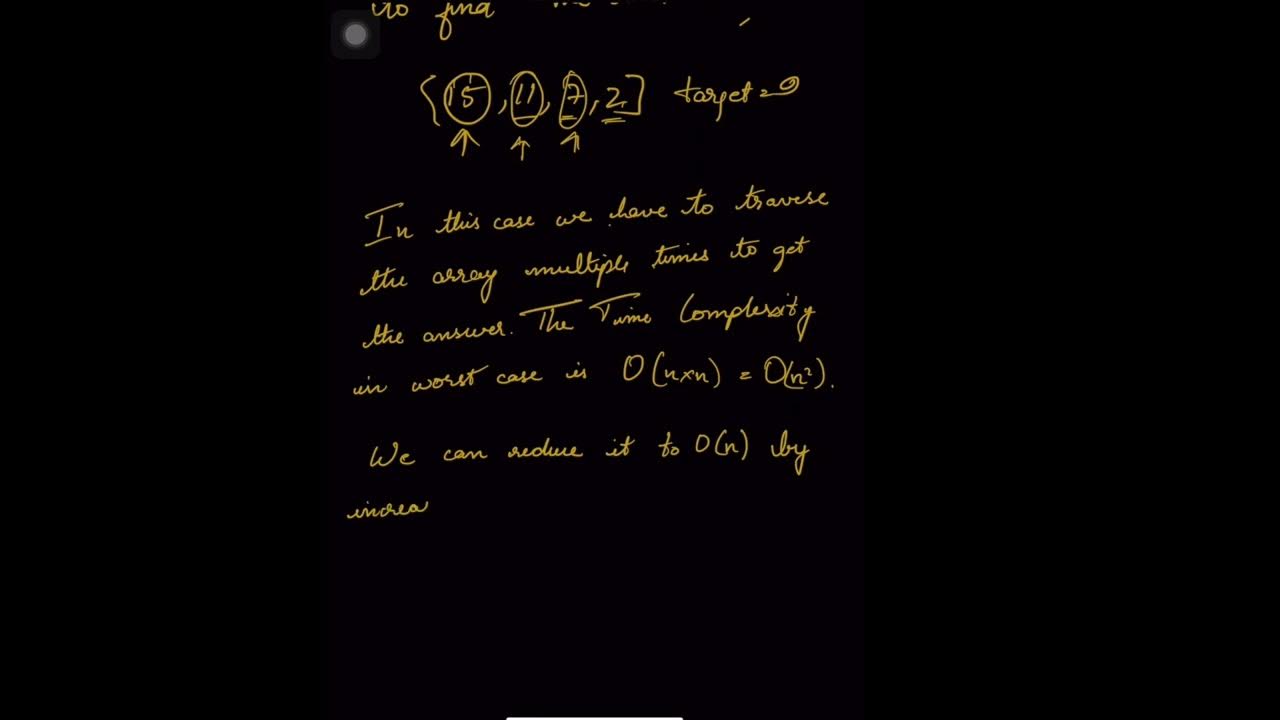 to find
{15, 11, 7, 2] target = 9
In this case we have to travese
the array multiple times to get
the answer. The Time Complexity
in worst case is O(n×n) = O(n²).
We can reduce it to O(n) by
increa